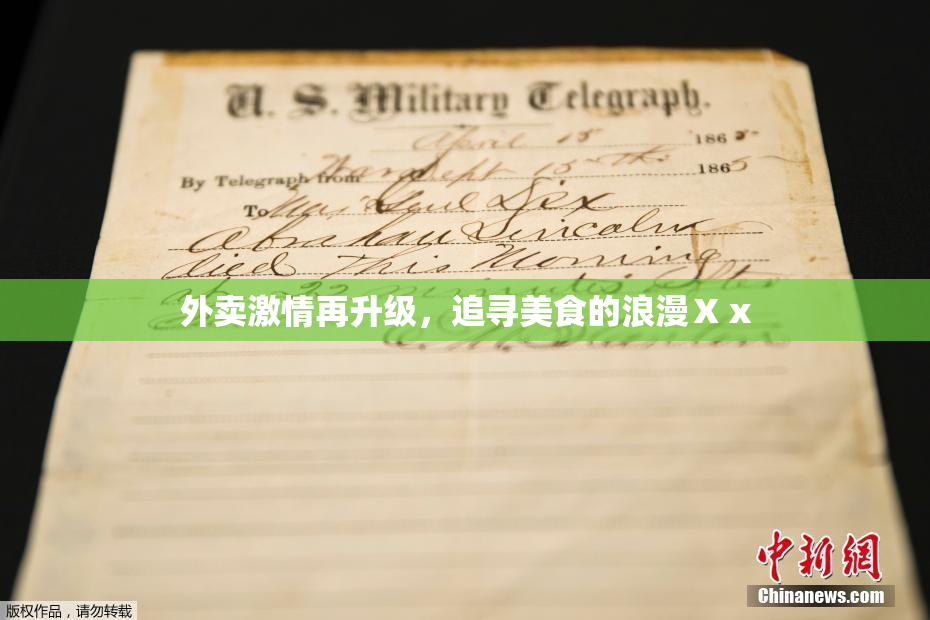 U. S. Military Telegraph.
April 15 1865
By Telegraph from War Dept 15th 1865
To Maj Genl Dix
Abraham Lincoln
died This Morning
22 minutes after
外卖激情再升级，追寻美食的浪漫X x
中新网
Chinanews.com
版权作品，请勿转载